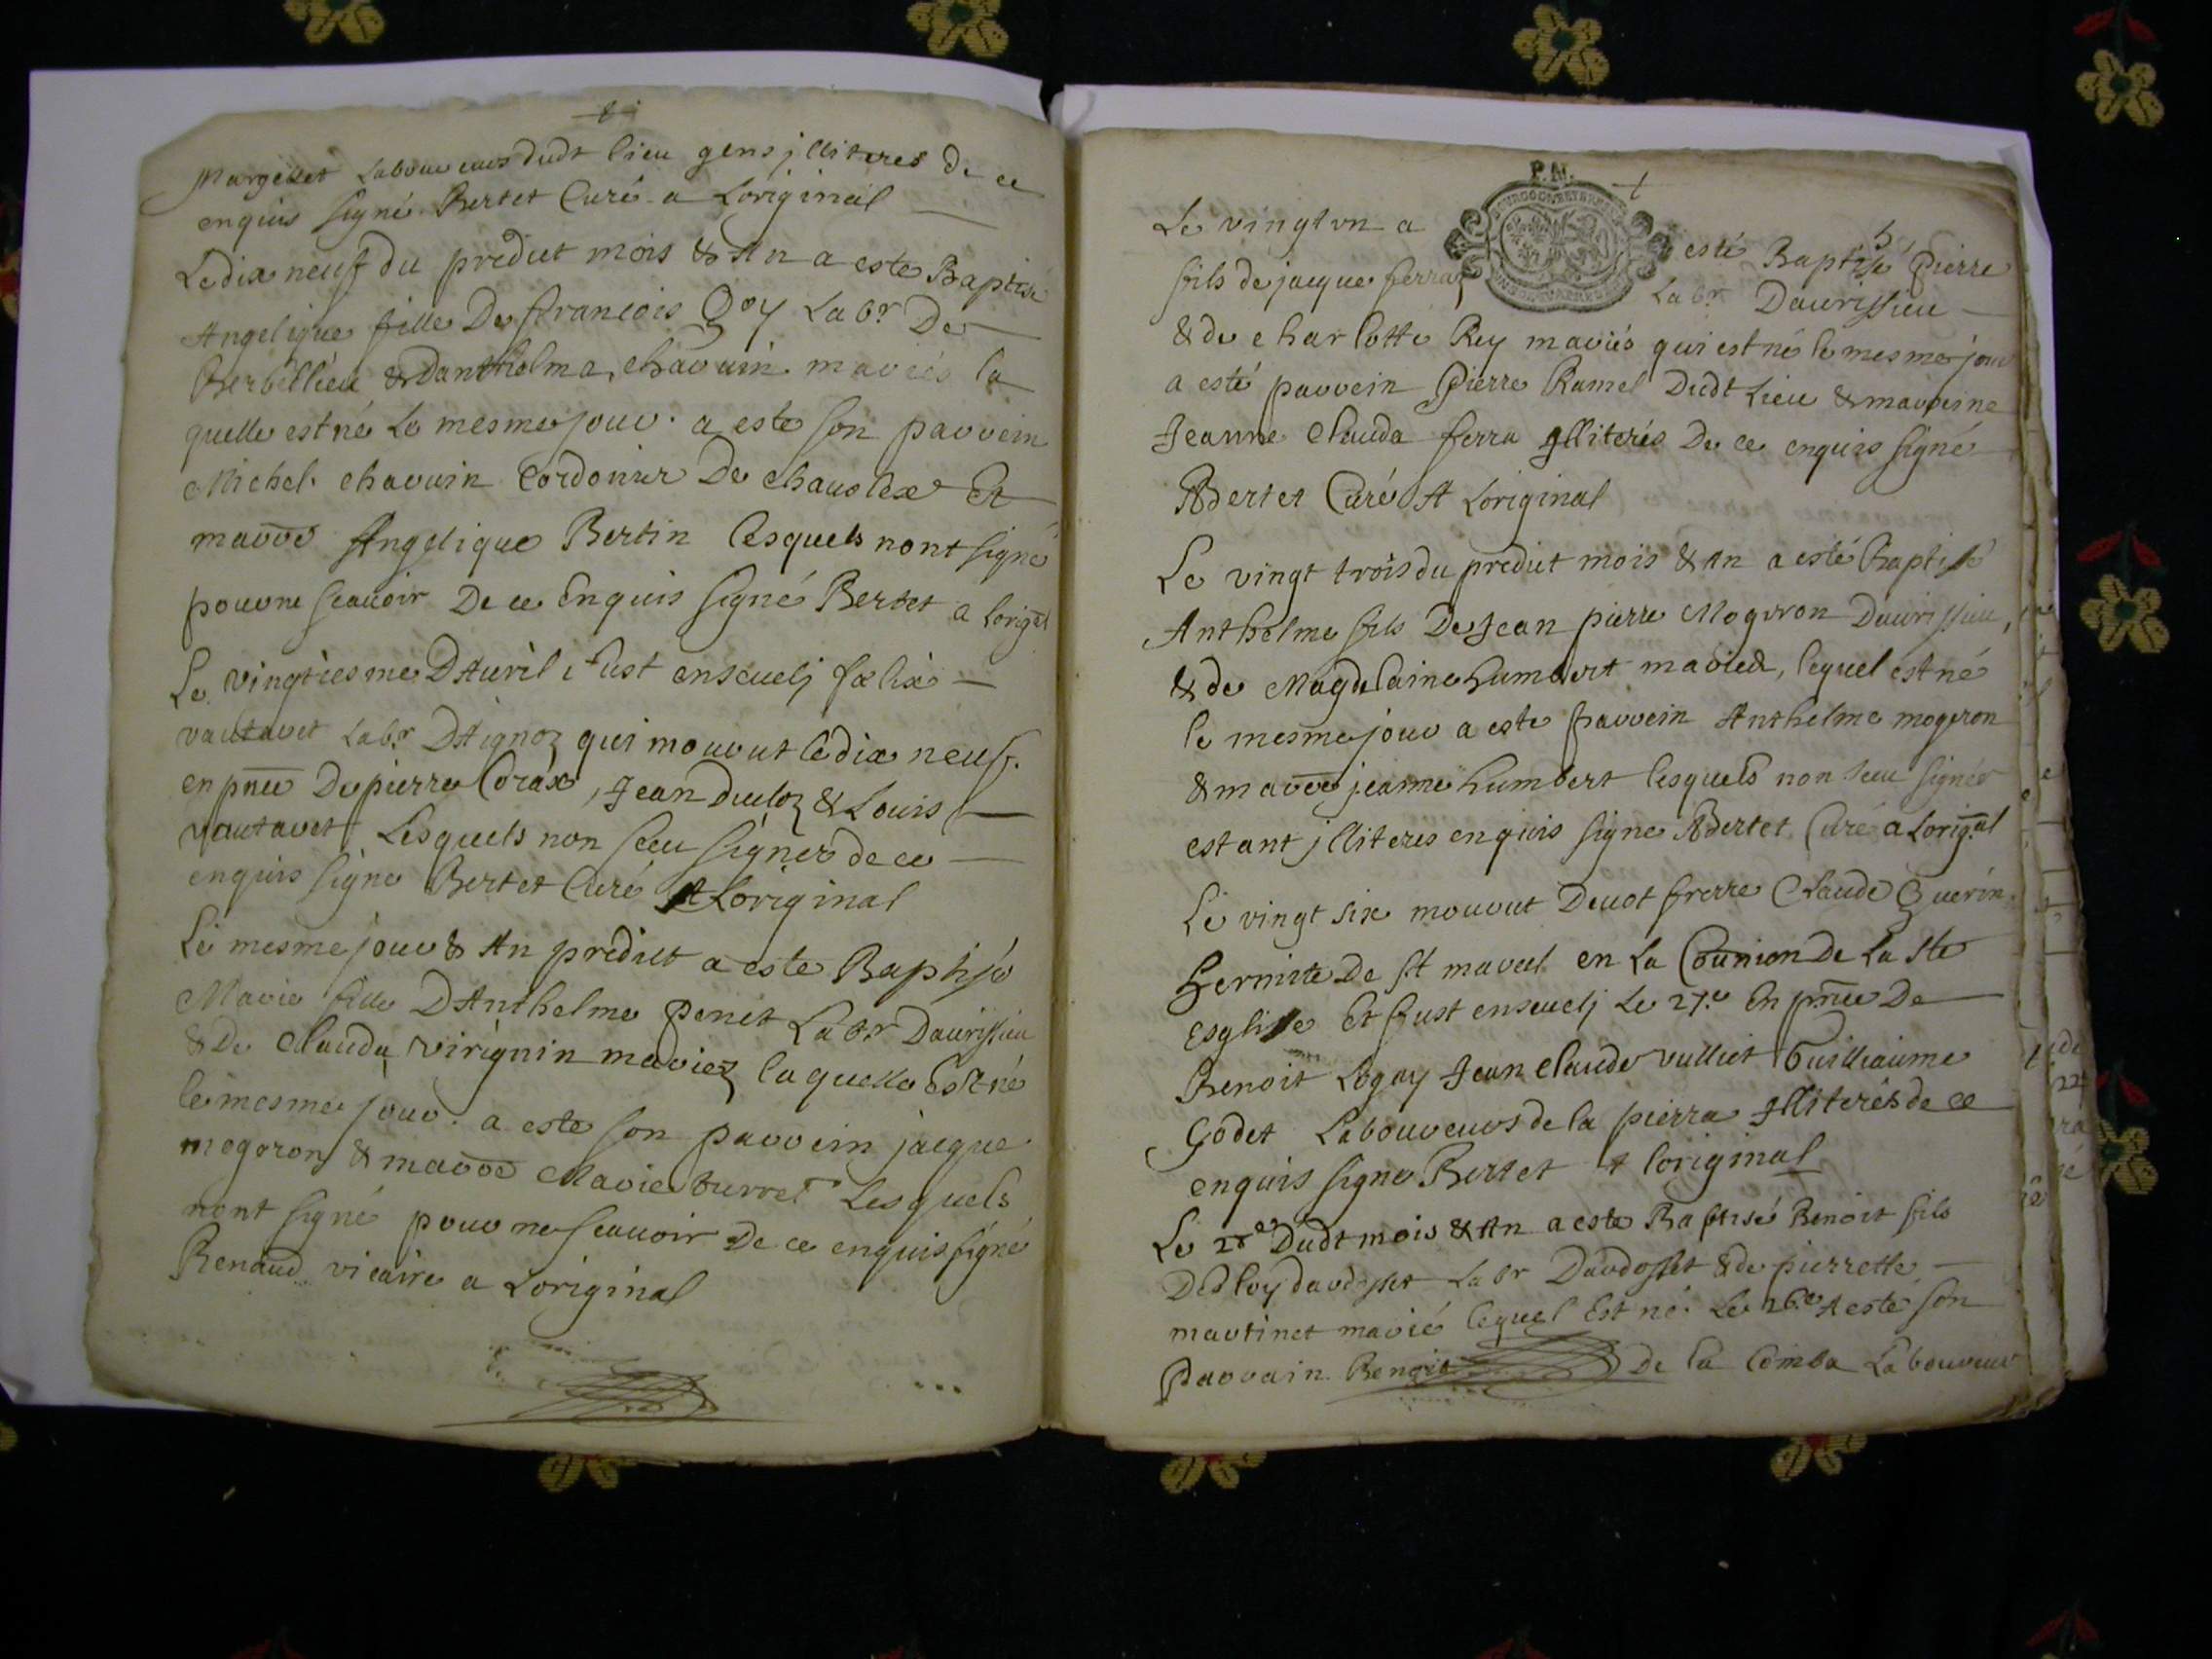 Margellet Laboureurs dudt lieu gens jlliteres de ce
enquis signé Bertet Curé a Loriginal
Le dix neuf du predict mois & An a este Baptisé
Angelique fille De francois Goy Labr. De
Berbellieu & Danthelma chavuin mariés la
quelle est né Le mesme jour. a este son parrein
Michel chavuin Cordonier De chanslex Et
marre Angelique Bertin Lesquels nont signé
pour ne scauoir De ce Enquis signé Bertet a Lorigal
Le vingtiesme DAuril fust enseuelj fœlix
vautaret Labr. DAignoz qui mourut le dix neuf.
en pnce De pierre Corax, Jean Ducloz & Louis
vautaret Lesquels non sceu signer de ce
enquis signe Bertet Curé A Loriginal
Le mesme jour & An predict a este Baptisé
Marie fille DAnthelme penet Labr Daurissieu
& De Clauda virignin mariez laquelle Est né
le mesme jour. a este son parrein jacque
mogeron & marre Marie burret Lesquels
nont signé pour ne scauoir De ce enquis signé
Renaud vicaire a Loriginal
P.N.
5
Le vingt vn a esté Baptisé Pierre
fils de jacque ferraz Labr. Daurissieu
& de charlotte Rey mariés qui est né le mesme jour
a esté parrein Pierre Ramel Dudt Lieu & marreine
Jeanne Clauda ferra Jlliterés De ce enquis signé
Bertet Curé A Loriginal
Le vingt trois du predict mois & An a esté Baptisé
Anthelme fils De Jean pierre Mogeron Daurissieu,
& de Magdelaine humbert mariez, lequel est né
le mesme jour a este parrein Anthelme mogeron
& marre jeanne humbert lesquels non sceu signés
estant jlliteres enquis signe Bertet Curé a Lorignal
Le vingt six mourut Deuot frerre Claude Guerin
Hermite De St maruel en La Counion De La Ste
Esglise Et fust enseuelj Le 27.e En pnce De
Benoit Logay Jean Claude vulliet Guilliaume
Godet Laboureurs de la pierra Jlliterés de ce
enquis signe Bertet A loriginal
Le 28e Dudt mois & An a este Baptisé Benoit fils
DEsloy dardosset Labr Dardosset & de pierrette
martinet marié lequel Est né Le 26.e A esté son
Parrain Benoit De la Comba Laboureur